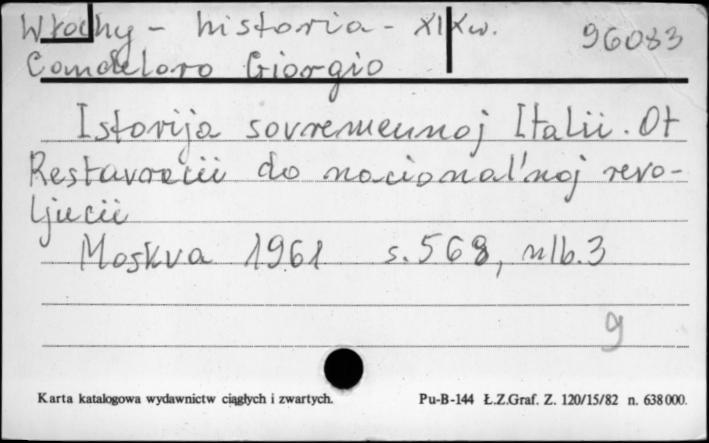 Włochy - historia - XIX w. 96083
Candeloro Giorgio
Istorija sovremennoj Italii. Ot
Restavracii do nacional'noj revo-
ljucii
Moskva 1961 s. 568, nlb. 3
9
Karta katalogowa wydawnictw ciągłych i zwartych. Pu-B-144 Ł.Z.Graf. Z. 120/15/82 n. 638000.